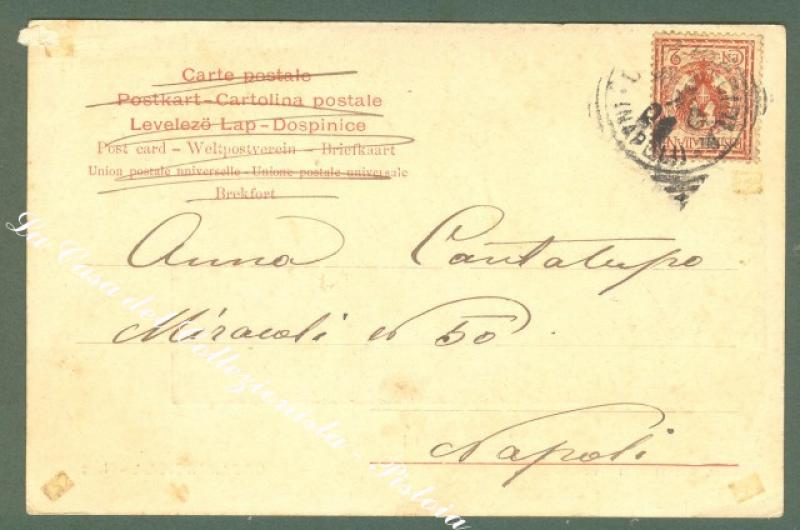 Carte postale
Postkart - Cartolina postale
Levelezö Lap - Dospinice
Post card - Weltpostverein - Briefkaart
Union postale universelle - Unione postale universale
Brekfort
(NAPOLI)
Anna Cantalupo
Miracoli n 50.
Napoli
La Casa del Collezionista - Pistoia